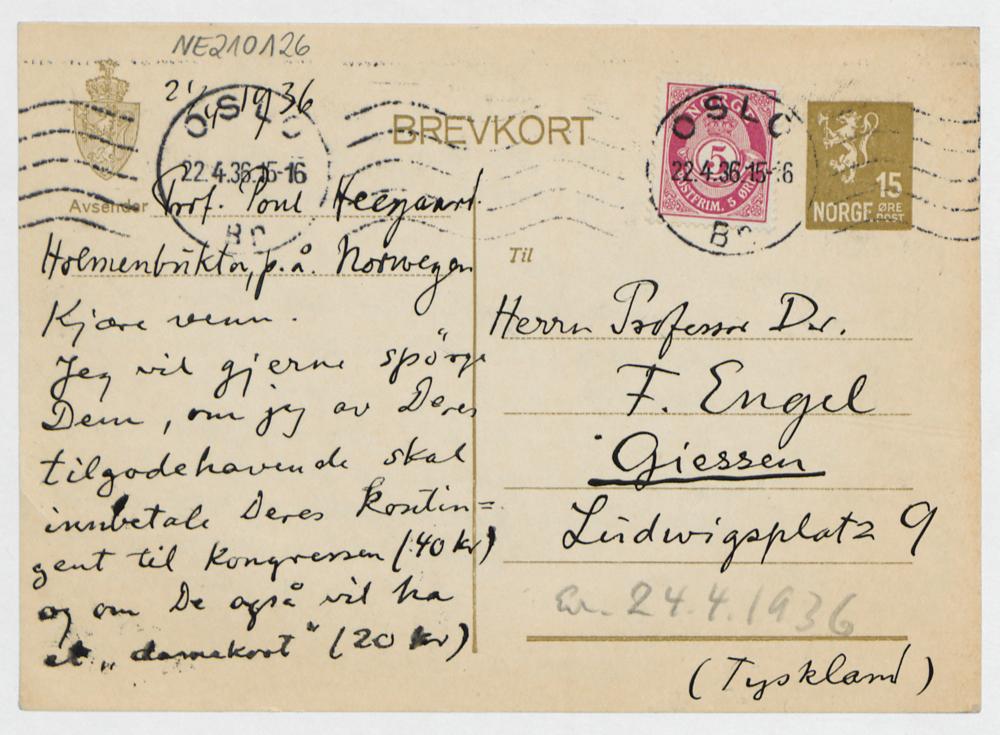 NE210126
22/4 1936
OSLO
22.4.36.15-16
Br.
BREVKORT
NORGE
5
POSTFRIM. 5 ØRE
OSLO
22.4.36.15-16
Br.
15
NORGE ØRE
POST
Avsender Prof. Poul Heegaard.
Holmenbukta, p.å. Norwegen
Kjære venn.
Jeg vil gjerne spörge
Dem, om jeg av Deres
tilgodehavende skal
innbetale Deres kontin=
gent til kongressen (40 kr)
og om De også vil ha
et „damekort" (20 kr)
Til
Herrn Professor Dr.
F. Engel
Giessen
Ludwigsplatz 9
24.4.1936
(Tyskland)